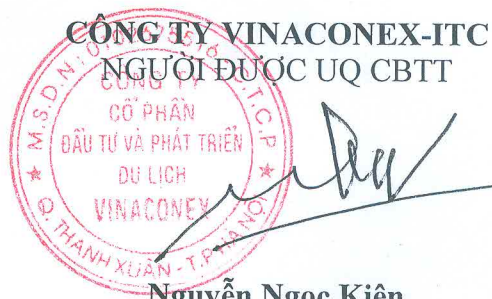 CÔNG TY VINACONEX-ITC
NGƯỜI ĐƯỢC UQ CBTT
CÔNG TY
CỔ PHẦN
ĐẦU TƯ VÀ PHÁT TRIỂN
DU LỊCH
VINACONEX
M.S.D.N:
C.T.C.P
Q. THANH XUÂN - T.P HÀ NỘI
Nguyễn Ngọc Kiên